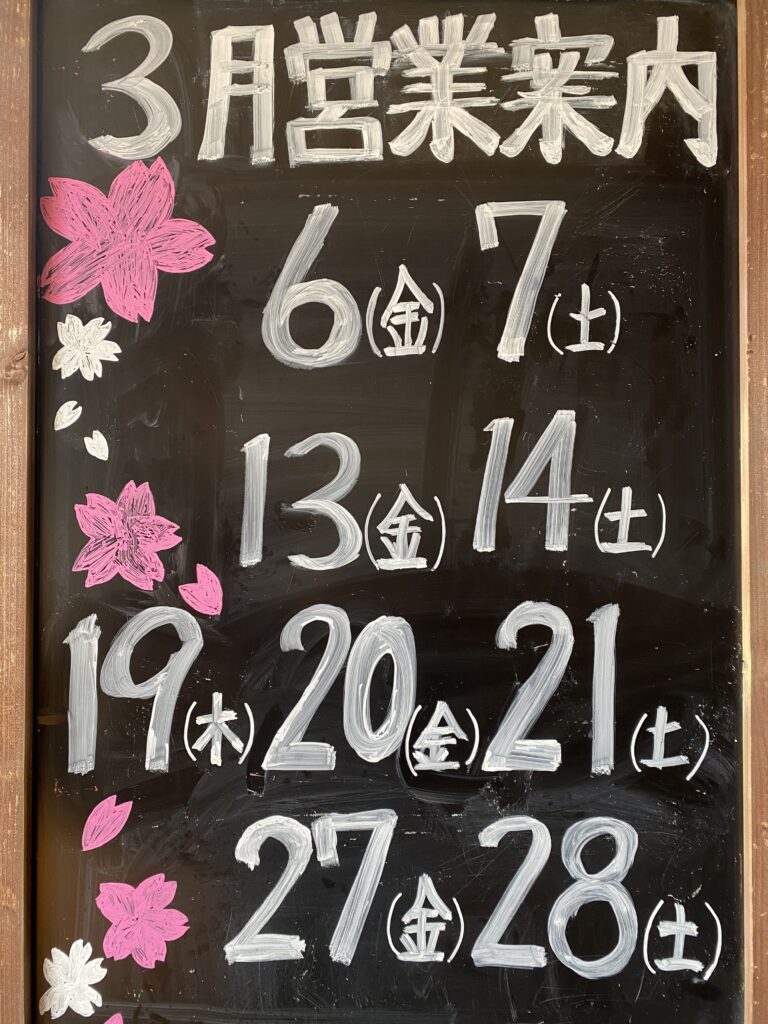 3月営業案内
6(金) 7(土)
13(金) 14(土)
19(木) 20(金) 21(土)
27(金) 28(土)